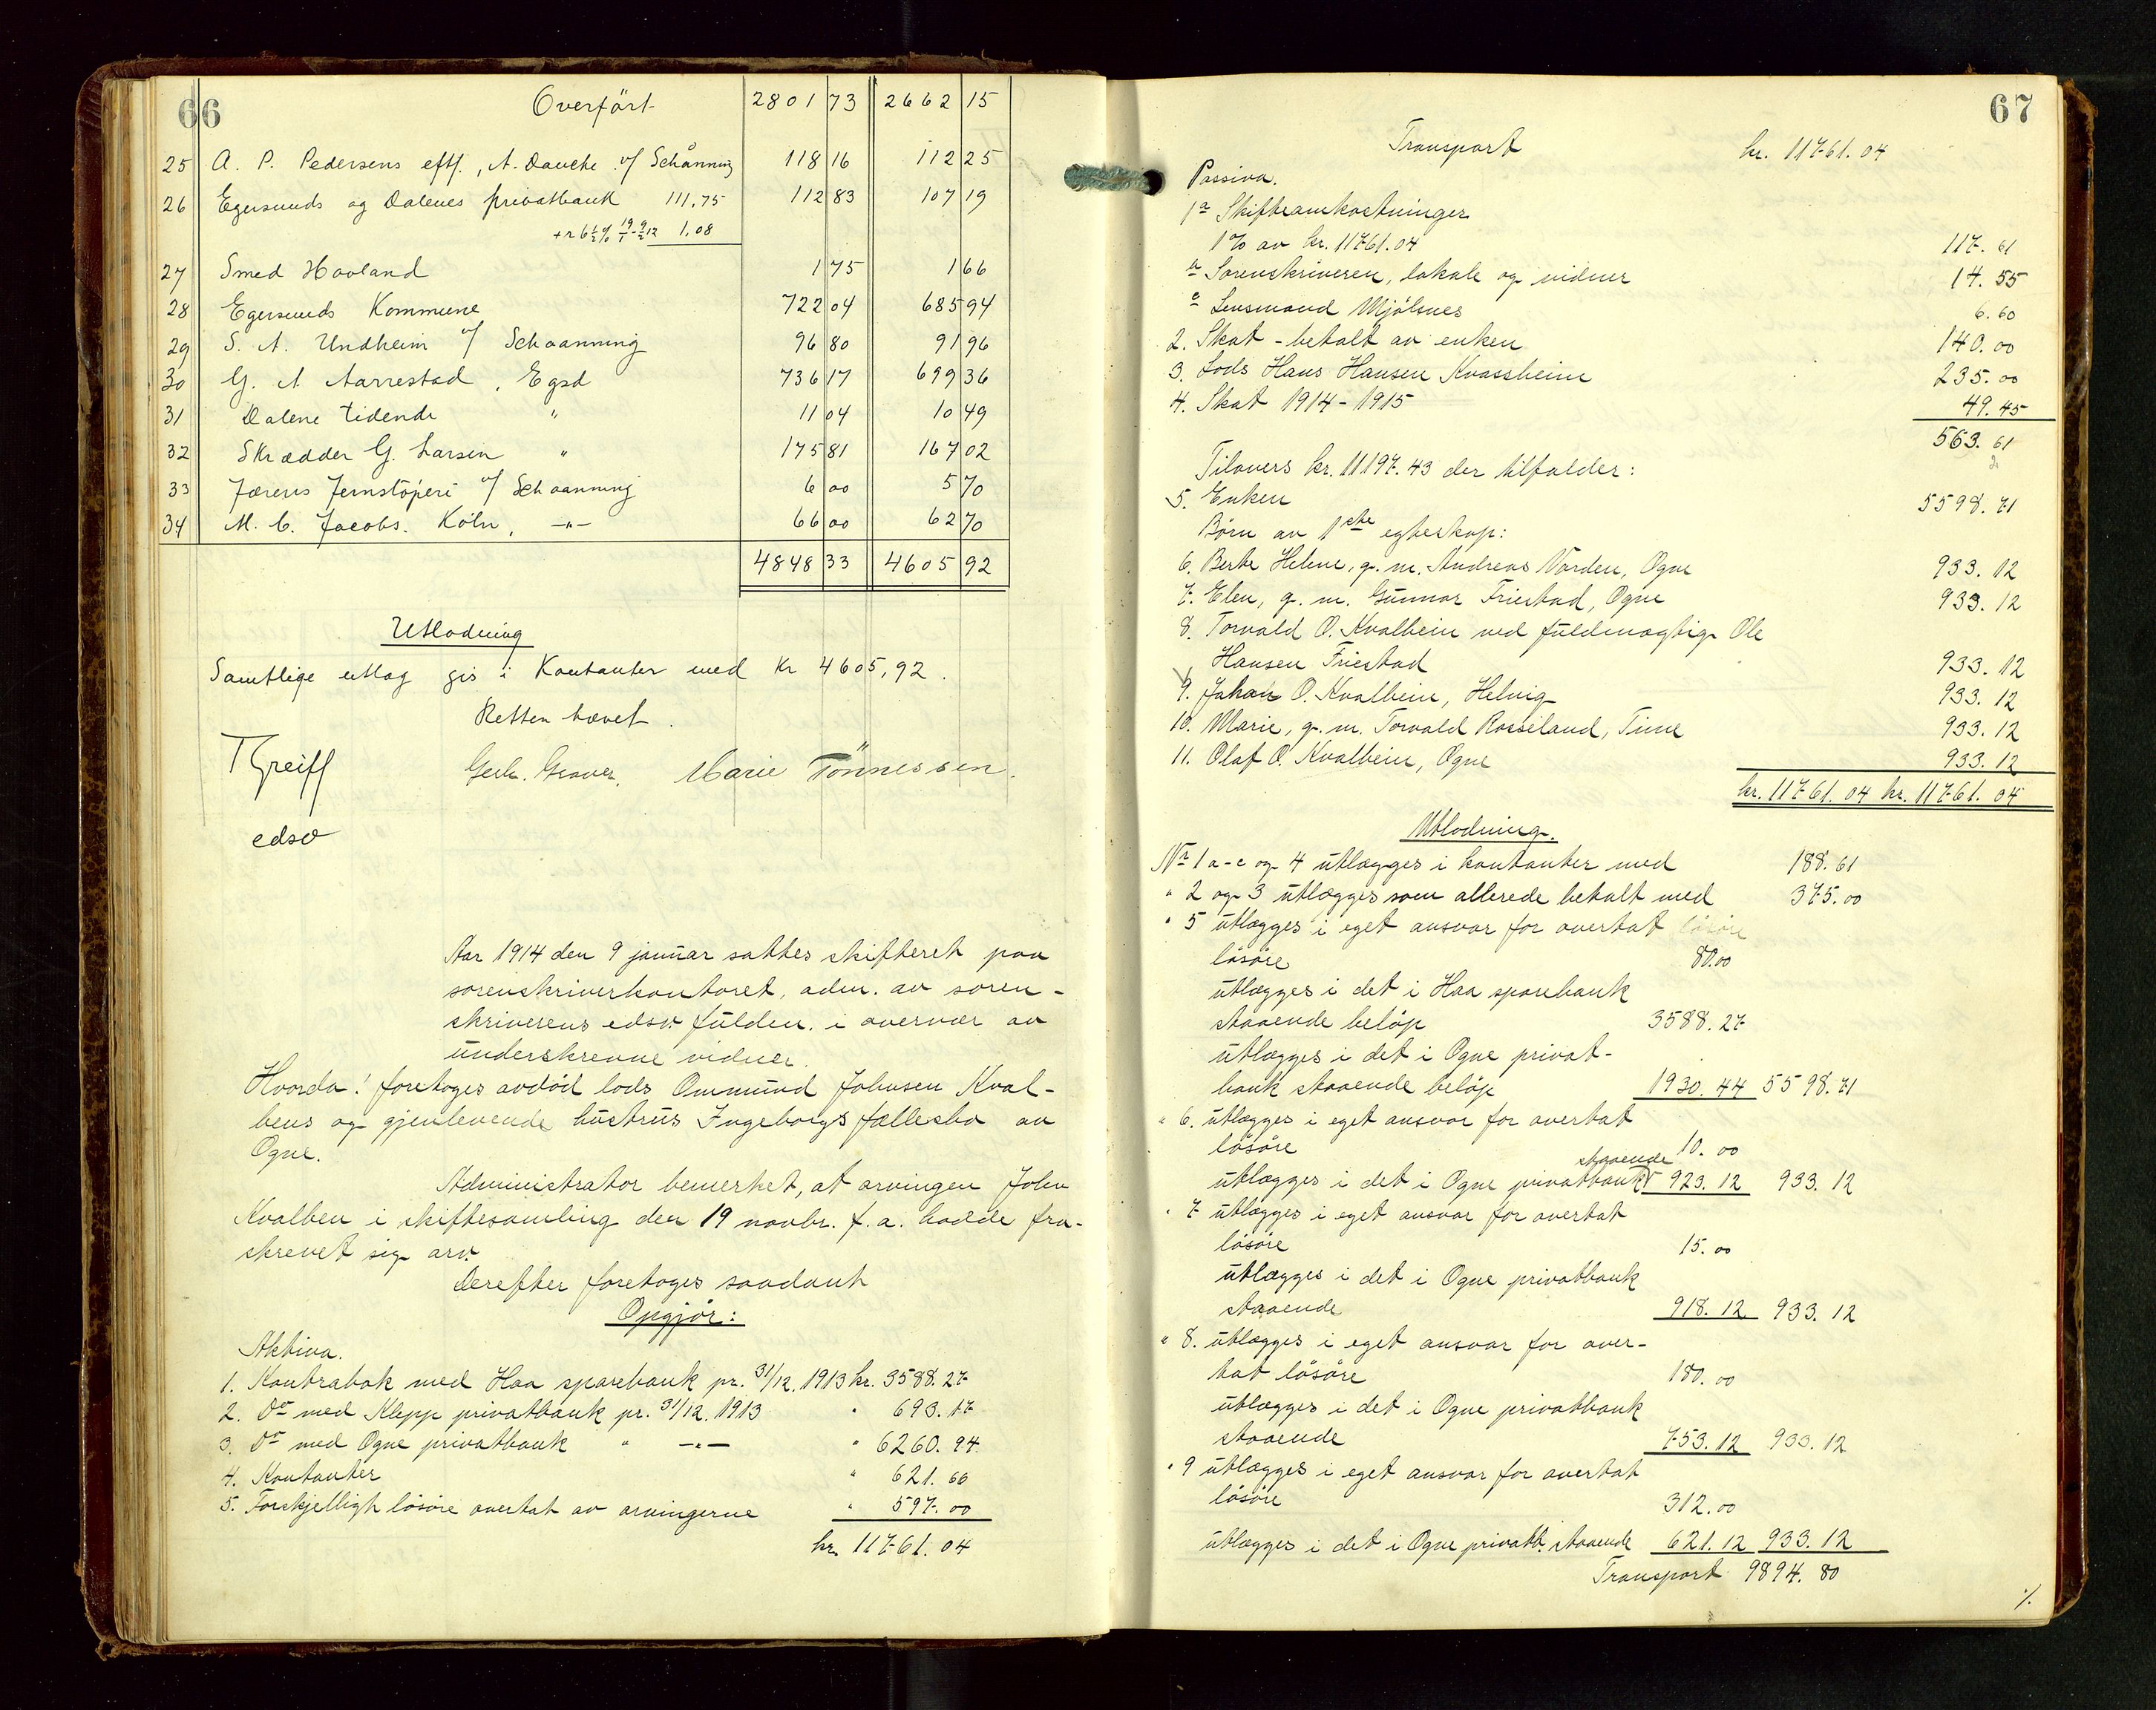 66
Overført 2801 73 2662 15
25 A. P. Pedersens eftf., A. Dauche v/ Schånning 118 16 112 25
26 Egersunds og Dalenes privatbank 111,75 112 83 107 19
+ r 6½% 19/1-9/3 12 1.08
27 Smed Hovland 1 75 1 66
28 Egersunds Kommune 722 04 685 94
29 S. A. Undheim v/ Schaanning 96 80 91 96
30 G. A Aarrestad, Egsd 736 17 699 36
31 Dalene tidende " 11 04 10 49
32 Skrædder G. Larsen " 175 81 167 02
33 Jærens Jernstøperi v/ Schaanning 6 00 5 70
34 M. C. Jacobs. Köln, -"- 66 00 62 70
4848 33 4605 92
Utlodning
Samtlige utlæg gis i Kontanter med Kr 4605,92.
Retten hævet.
T Greiff Gerh. Graver. Marie Tönnessen.
edsv
Aar 1914 den 9 januar sattes skifteret paa
sorenskriverkontoret, adm. av soren-
skriverens edsv. fuldm. i overvær av
underskrevne vidner.
Hvorda! foretoges avdød lods Ommund Johnsen Kval-
bens og gjenlevende hustrus Ingeborgs fællesbo av
Ogne.
Administrator bemerket, at arvingen John
Kvalben i skiftesamling den 19 novbr. f. a. hadde fra-
skrevet sig arv.
Derefter foretoges saadant
Opgjør:
Aktiva.
1. Kontrabok med Haa sparebank pr. 31/12. 1913 kr. 3588.27
2. Do med Klepp privatbank pr. 31/12. 1913 " 693.17
3. Do med Ogne privatbank " -"- " 6260.94
4. Kontanter " 621.66
5. Forskjelligt løsøre overtat av arvingerne " 597.00
kr. 11761.04
67
Transport kr. 11761.04
Passiva.
1a Skifteomkostninger
1% av kr. 11761.04 117.61
b Sorenskriveren, lokale og vidner 14.55
c Lensmand Mjølsnes 6.60
2. Skat - betalt av enken 140.00
3. Lods Hans Hansen Kvassheim 235.00
4. Skat 1914-1915 49.45
563.61
Tilovers kr. 11197.43 der tilfalder:
5. Enken 5598.71
Børn av 1ste egteskap:
6. Berte Helene, g. m. Andreas Varden, Ogne 933.12
7. Elen, g. m. Gunnar Friestad, Ogne 933.12
8. Torvald O. Kvalbein ved fuldmægtig Ole
Hansen Friestad 933.12
9. Johan O. Kvalbein, Helvig 933.12
10. Marie, g. m. Torvald Rosseland, Time 933.12
11. Olaf O. Kvalbein, Ogne 933.12
kr. 11761.04 kr. 11761.04
Utlodning.
Nr 1 a-c og 4 utlægges i kontanter med 188.61
" 2 og 3 utlægges som allerede betalt med 375.00
" 5 utlægges i eget ansvar for overtat løsøre
løsøre 80.00
utlægges i det i Haa sparebank
staaende beløp 3588.27
utlægges i det i Ogne privat-
bank staaende beløp 1930.44 5598.71
" 6. utlægges i eget ansvar for overtat
løsøre 10.00
staaende
utlægges i det i Ogne privatbank 923.12 933.12
" 7 utlægges i eget ansvar for overtat
løsøre 15.00
utlægges i det i Ogne privatbank
staaende 918.12 933.12
" 8. utlægges i eget ansvar for over-
tat løsøre 180.00
utlægges i det i Ogne privatbank
staaende 753.12 933.12
" 9 utlægges i eget ansvar for overtat
løsøre 312.00
utlægges i det i Ogne privatb. staaende 621.12 933.12
Transport 9894.80
./.